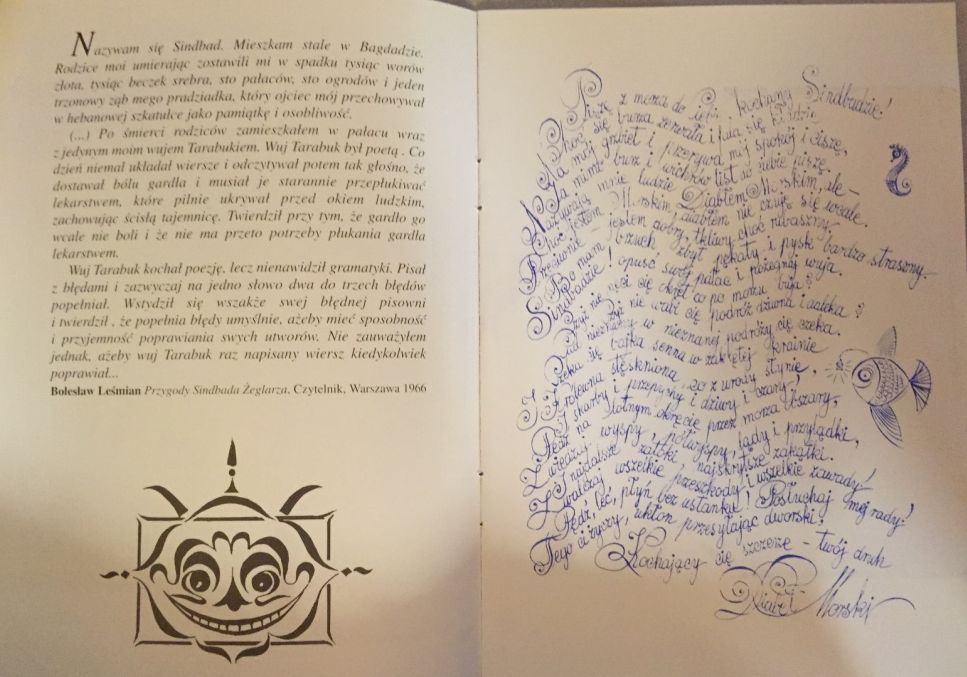 Nazywam się Sindbad. Mieszkam stale w Bagdadzie.
Rodzice moi umierając zostawili mi w spadku tysiąc worów
złota, tysiąc beczek srebra, sto pałaców, sto ogrodów i jeden
trzonowy ząb mego pradziadka, który ojciec mój przechowywał
w hebanowej szkatułce jako pamiątkę i osobliwość.
(...) Po śmierci rodziców zamieszkałem w pałacu wraz
z jedynym moim wujem Tarabukiem. Wuj Tarabuk był poetą. Co
dzień niemal układał wiersze i odczytywał potem tak głośno, że
dostawał bólu gardła i musiał je starannie przepłukiwać
lekarstwem, które pilnie ukrywał przed okiem ludzkim,
zachowując ścisłą tajemnicę. Twierdził przy tym, że gardło go
wcale nie boli i że nie ma przeto potrzeby płukania gardła
lekarstwem.
Wuj Tarabuk kochał poezję, lecz nienawidził gramatyki. Pisał
z błędami i zazwyczaj na jedno słowo dwa do trzech błędów
popełniał. Wstydził się wszakże swej błędnej pisowni
i twierdził , że popełnia błędy umyślnie, ażeby mieć sposobność
i przyjemność poprawiania swych utworów. Nie zauważyłem
jednak, ażeby wuj Tarabuk raz napisany wiersz kiedykolwiek
poprawiał...
Bolesław Leśmian Przygody Sindbada Żeglarza, Czytelnik, Warszawa 1966
Piszę z morza do ciebie, kochany Sindbadzie!
Choć się burza zerwała i
Na mój grzbiet i przerywa mój spokój i ciszę,
Ja mimo burz i wichrów list do ciebie piszę.
Nazywają mnie ludzie Diabłem Morskim, ale –
Choć jestem Morskim diabłem nie czuję się wcale.
Przeciwnie – jestem dobry, tkliwy, choć rubaszny,
Bo mam brzuch zbyt pękaty i pysk bardzo straszny.
Sindbadzie! opuść swój pałac i pożegnaj wuja.
Czyż nie nęci cię okręt co po morzu buja?
Czyż nie wabi cię podróż dziwna i daleka?
Cud nieznany w nieznanej podróży cię czeka.
Czeka cię bajka senna w zaklętej krainie
I królewna stęskniona, co z urody słynie,
I skarby i przepychy i dziwy i czary!
Pędź na lotnym okręcie przez morza obszary,
Zwiedzaj wyspy, półwyspy, lądy i przylądki,
I najdalsze zatoki najskrytsze zakątki.
Zwalczaj wszelkie przeszkody i wszelkie zawady!
Pędź, leć, płyń bez ustanku! Posłuchaj mej rady!
Tego ci życzy, ukłon przesyłając dworski,
Kochający cię szczerze – twój druh
Diabeł Morski